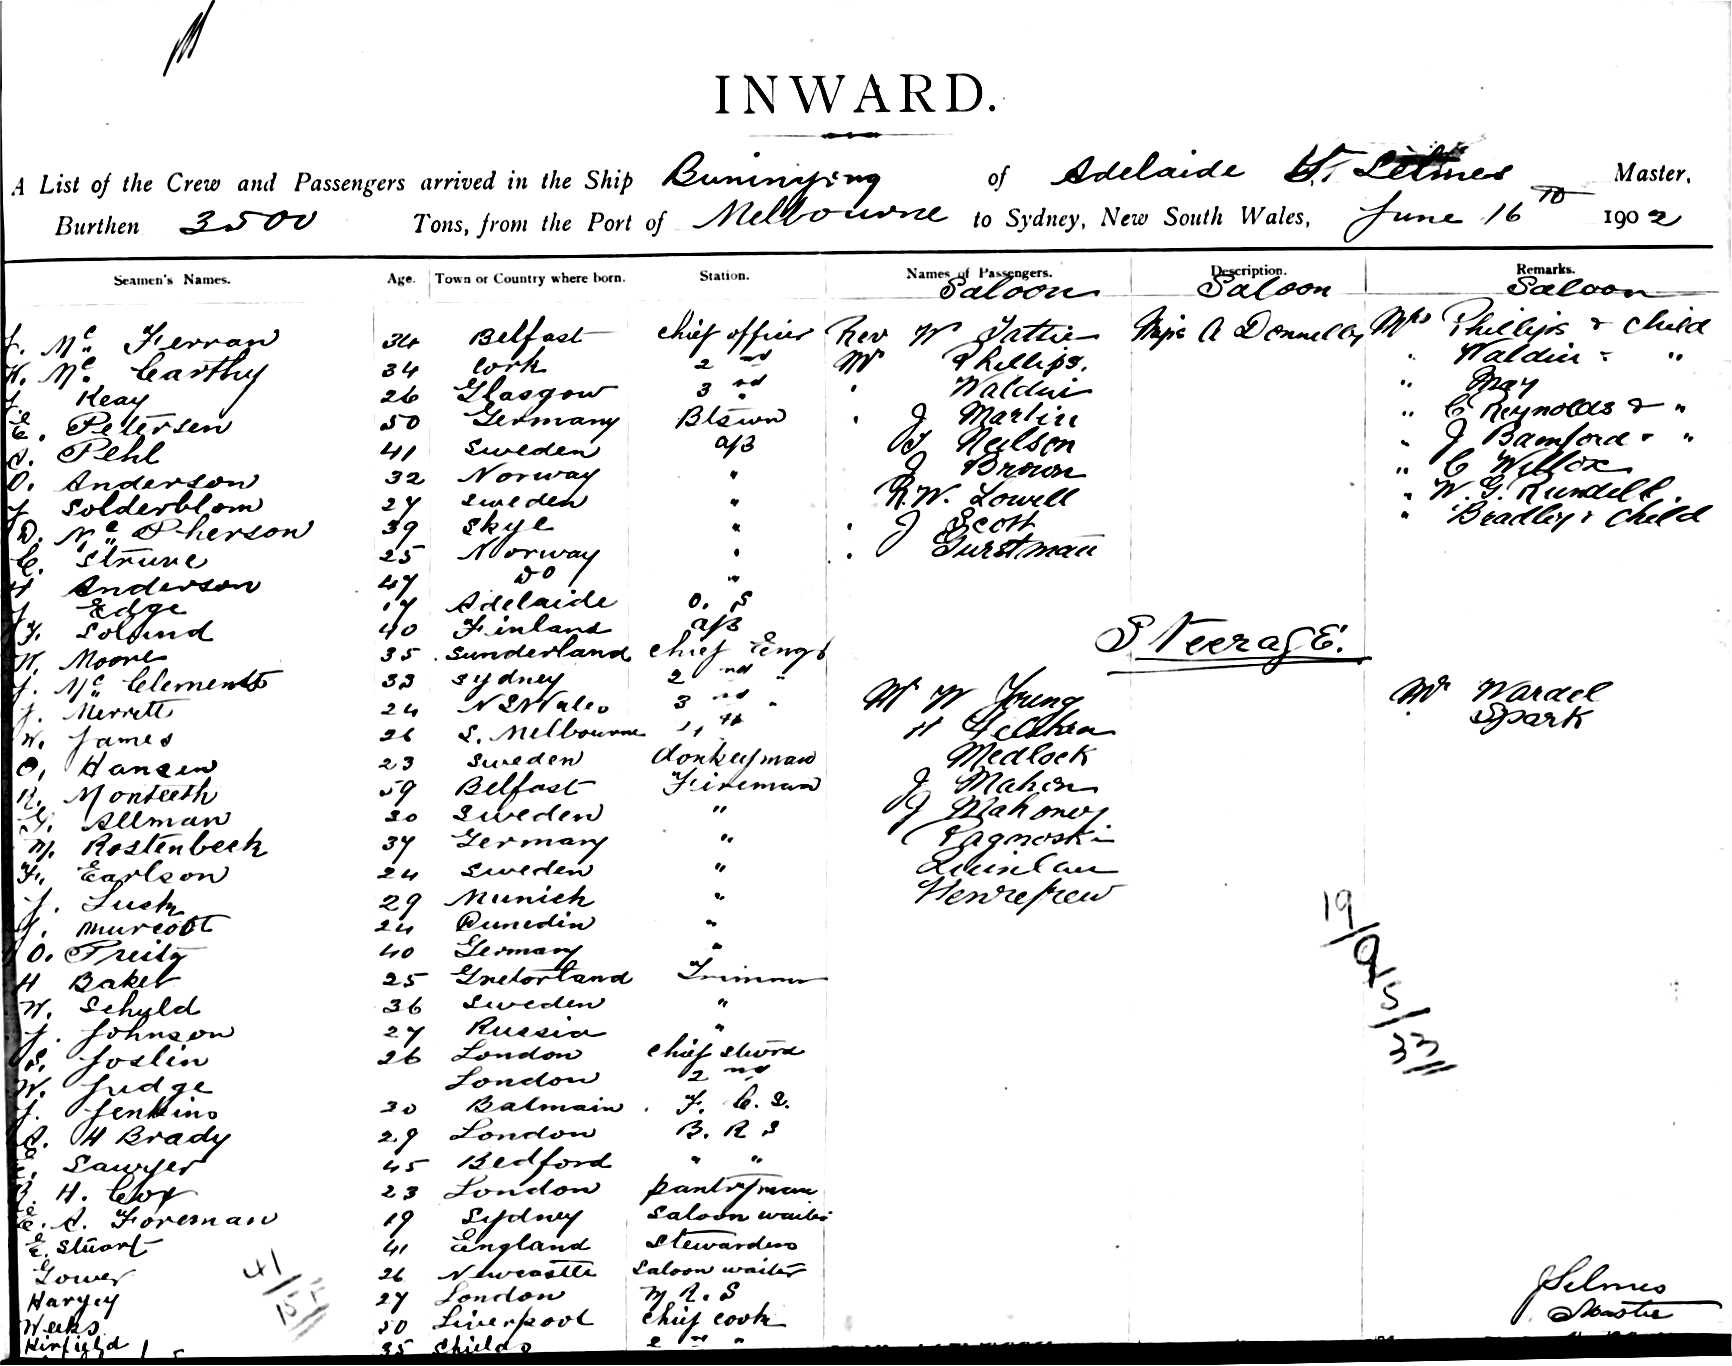 INWARD.
A List of the Crew and Passengers arrived in the Ship Buninyong of Adelaide Selmes Master,
Burthen 3500 Tons, from the Port of Melbourne to Sydney, New South Wales, June 16 th 1902
Seamen's Names. Age. Town or Country where born. Station. Names of Passengers. Description. Remarks.
Saloon Saloon Saloon
J. Mc Ferran 34 Belfast chief officer Rev W Tattie Miss A Donnelley Mrs Phillips & child
Mc Carthy 34 Cork 2 nd Mr Phillips. " Waldin " "
Keay 26 Glasgow 3 rd " Waldin " May
E. Petersen 50 Germany Btswn " J Martin " C Reynolds & "
Pehl 41 Sweden A/B Neilson " J Bamford " "
O. Anderson 32 Norway " J Brown " C Willox
J Solderblom 27 Sweden " R.W. Lowell " W. G. Rundell.
D. Mc Pherson 39 Skye " " J Scott " Bradley & child
C. Strune 25 Norway " "
H Anderson 47 Do "
J. Edge 17 Adelaide O. S
Solund 40 Finland A/B
Steerage.
W. Moore 35 Sunderland chief Engr
J. Mc Clements 33 Sydney 2 nd " Mr W Young Mr Wardel
J. Merrett 24 N S Wales 3 rd " H Spark
W. James 26 S. Melbourne 4 th Medlock
O. Hansen 23 Sweden donkeyman J Mahon
R. Monteeth 59 Belfast Fireman J Mahoney
Allman 30 Sweden " Pagnoski
M. Rostenbeck 37 Germany " Quinlan
F. Earlson 24 Sweden "
J. Lusk 29 Munich "
J. Murcott 24 Dunedin "
O. Treitz 40 Germany "
H Baker 25 Trimmer
W. Schuld 36 Sweden "
J. Johnson 27 Russia "
S. Joslin 26 London chief stwrd
W. Judge London 2 nd
J. Jenkins 20 Balmain F. C. S.
A. H Brady 29 London B. R S
Sawyer 45 Bedford " "
H. Cox 23 London pantryman
E. A. Foreman 19 Sydney Saloon waiter
E. Stuart 41 England Stewardess
Gower 26 Newcastle Saloon waiter
Harvey 27 London M R. S
Weeks 50 Liverpool chief cook
Kirfield 35 Shields 2 nd "
19/9/5/33
41/
J Selmes
Master